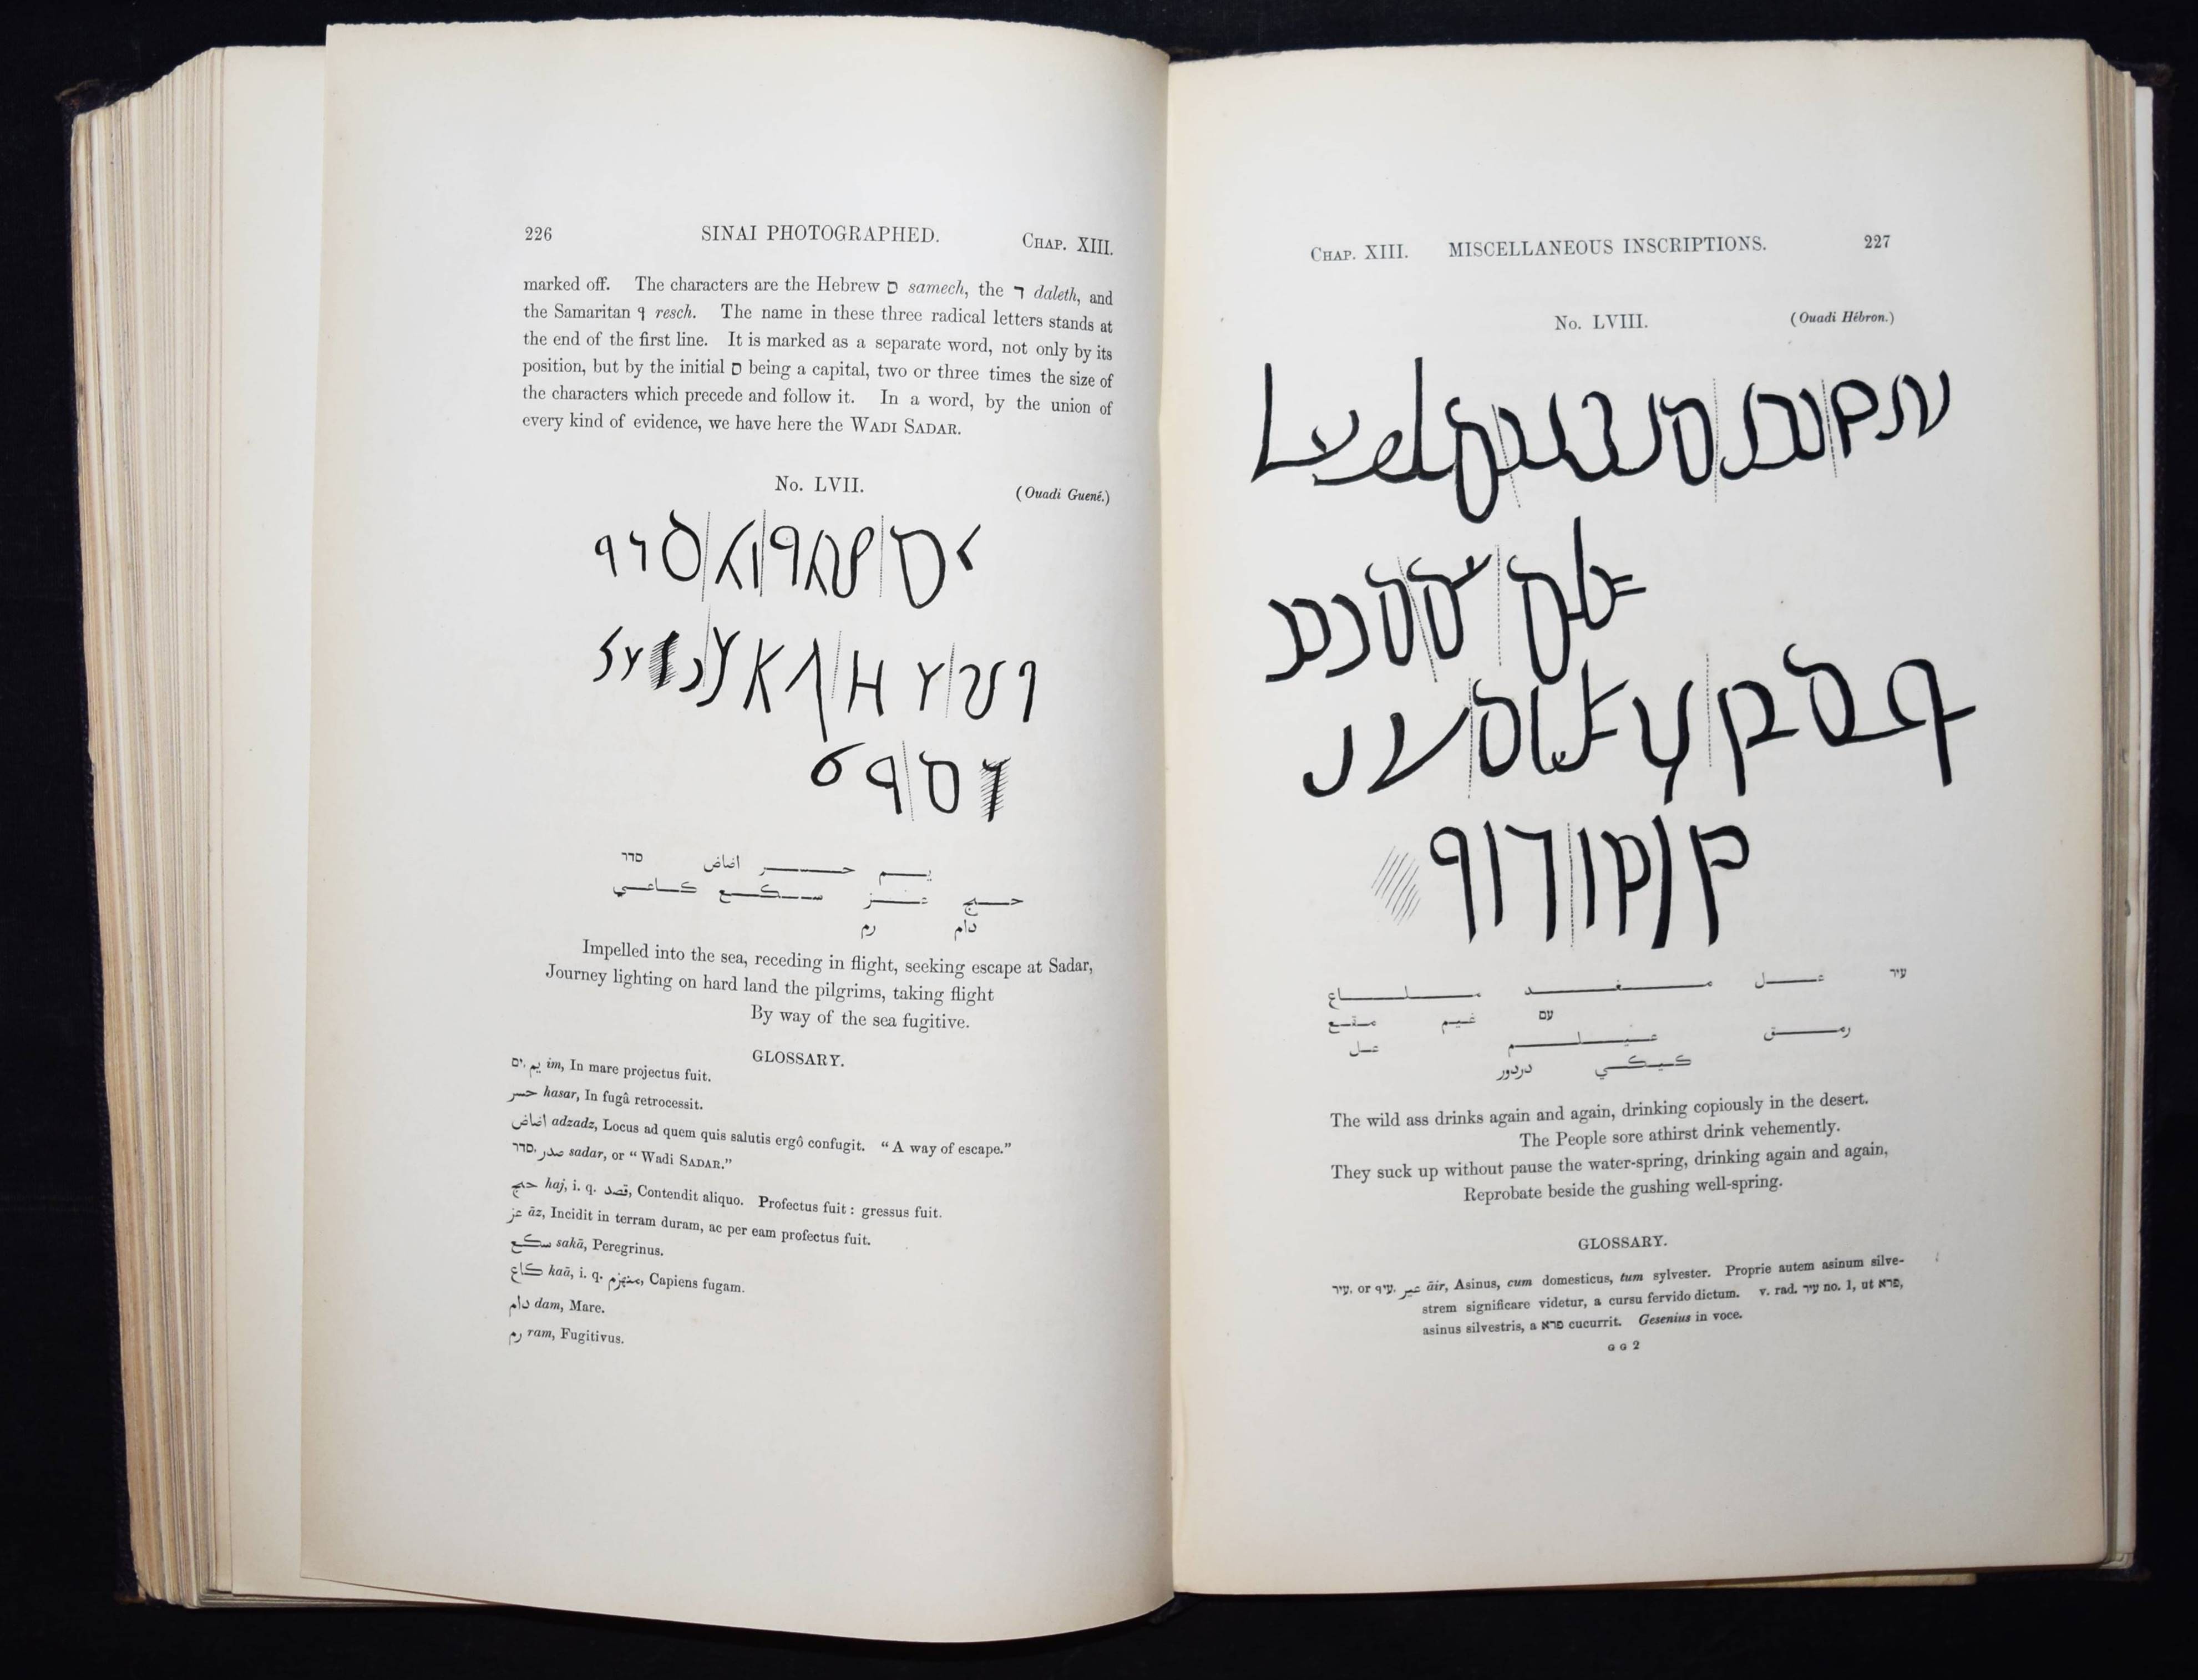 226 SINAI PHOTOGRAPHED. CHAP. XIII.
marked off. The characters are the Hebrew ם samech, the ד daleth, and
the Samaritan ף resch. The name in these three radical letters stands at
the end of the first line. It is marked as a separate word, not only by its
position, but by the initial ם being a capital, two or three times the size of
the characters which precede and follow it. In a word, by the union of
every kind of evidence, we have here the WADI SADAR.
No. LVII. (Ouadi Guené.)
يم حر اضاض סדר
حج عز سكع كاعي
دام رم
Impelled into the sea, receding in flight, seeking escape at Sadar,
Journey lighting on hard land the pilgrims, taking flight
By way of the sea fugitive.
GLOSSARY.
ים. يم im, In mare projectus fuit.
حسر hasar, In fugâ retrocessit.
اضاض adzadz, Locus ad quem quis salutis ergô confugit. “A way of escape.”
סדר. صدر sadar, or “Wadi SADAR.”
حج haj, i. q. قصد, Contendit aliquo. Profectus fuit: gressus fuit.
عز āz, Incidit in terram duram, ac per eam profectus fuit.
سكع sakā, Peregrinus.
كاع kaā, i. q. منهزم, Capiens fugam.
دام dam, Mare.
رم ram, Fugitivus.
CHAP. XIII. MISCELLANEOUS INSCRIPTIONS. 227
No. LVIII. (Ouadi Hébron.)
עיר عل مغد ملاع
עם غيم مقع
رمق عيلم عل
كيكي دردور
The wild ass drinks again and again, drinking copiously in the desert.
The People sore athirst drink vehemently.
They suck up without pause the water-spring, drinking again and again,
Reprobate beside the gushing well-spring.
GLOSSARY.
עיר. or עיף. عير āir, Asinus, cum domesticus, tum sylvester. Proprie autem asinum silve-
strem significare videtur, a cursu fervido dictum. v. rad. עיר no. 1, ut פרא,
asinus silvestris, a פרא cucurrit. Gesenius in voce.
G G 2